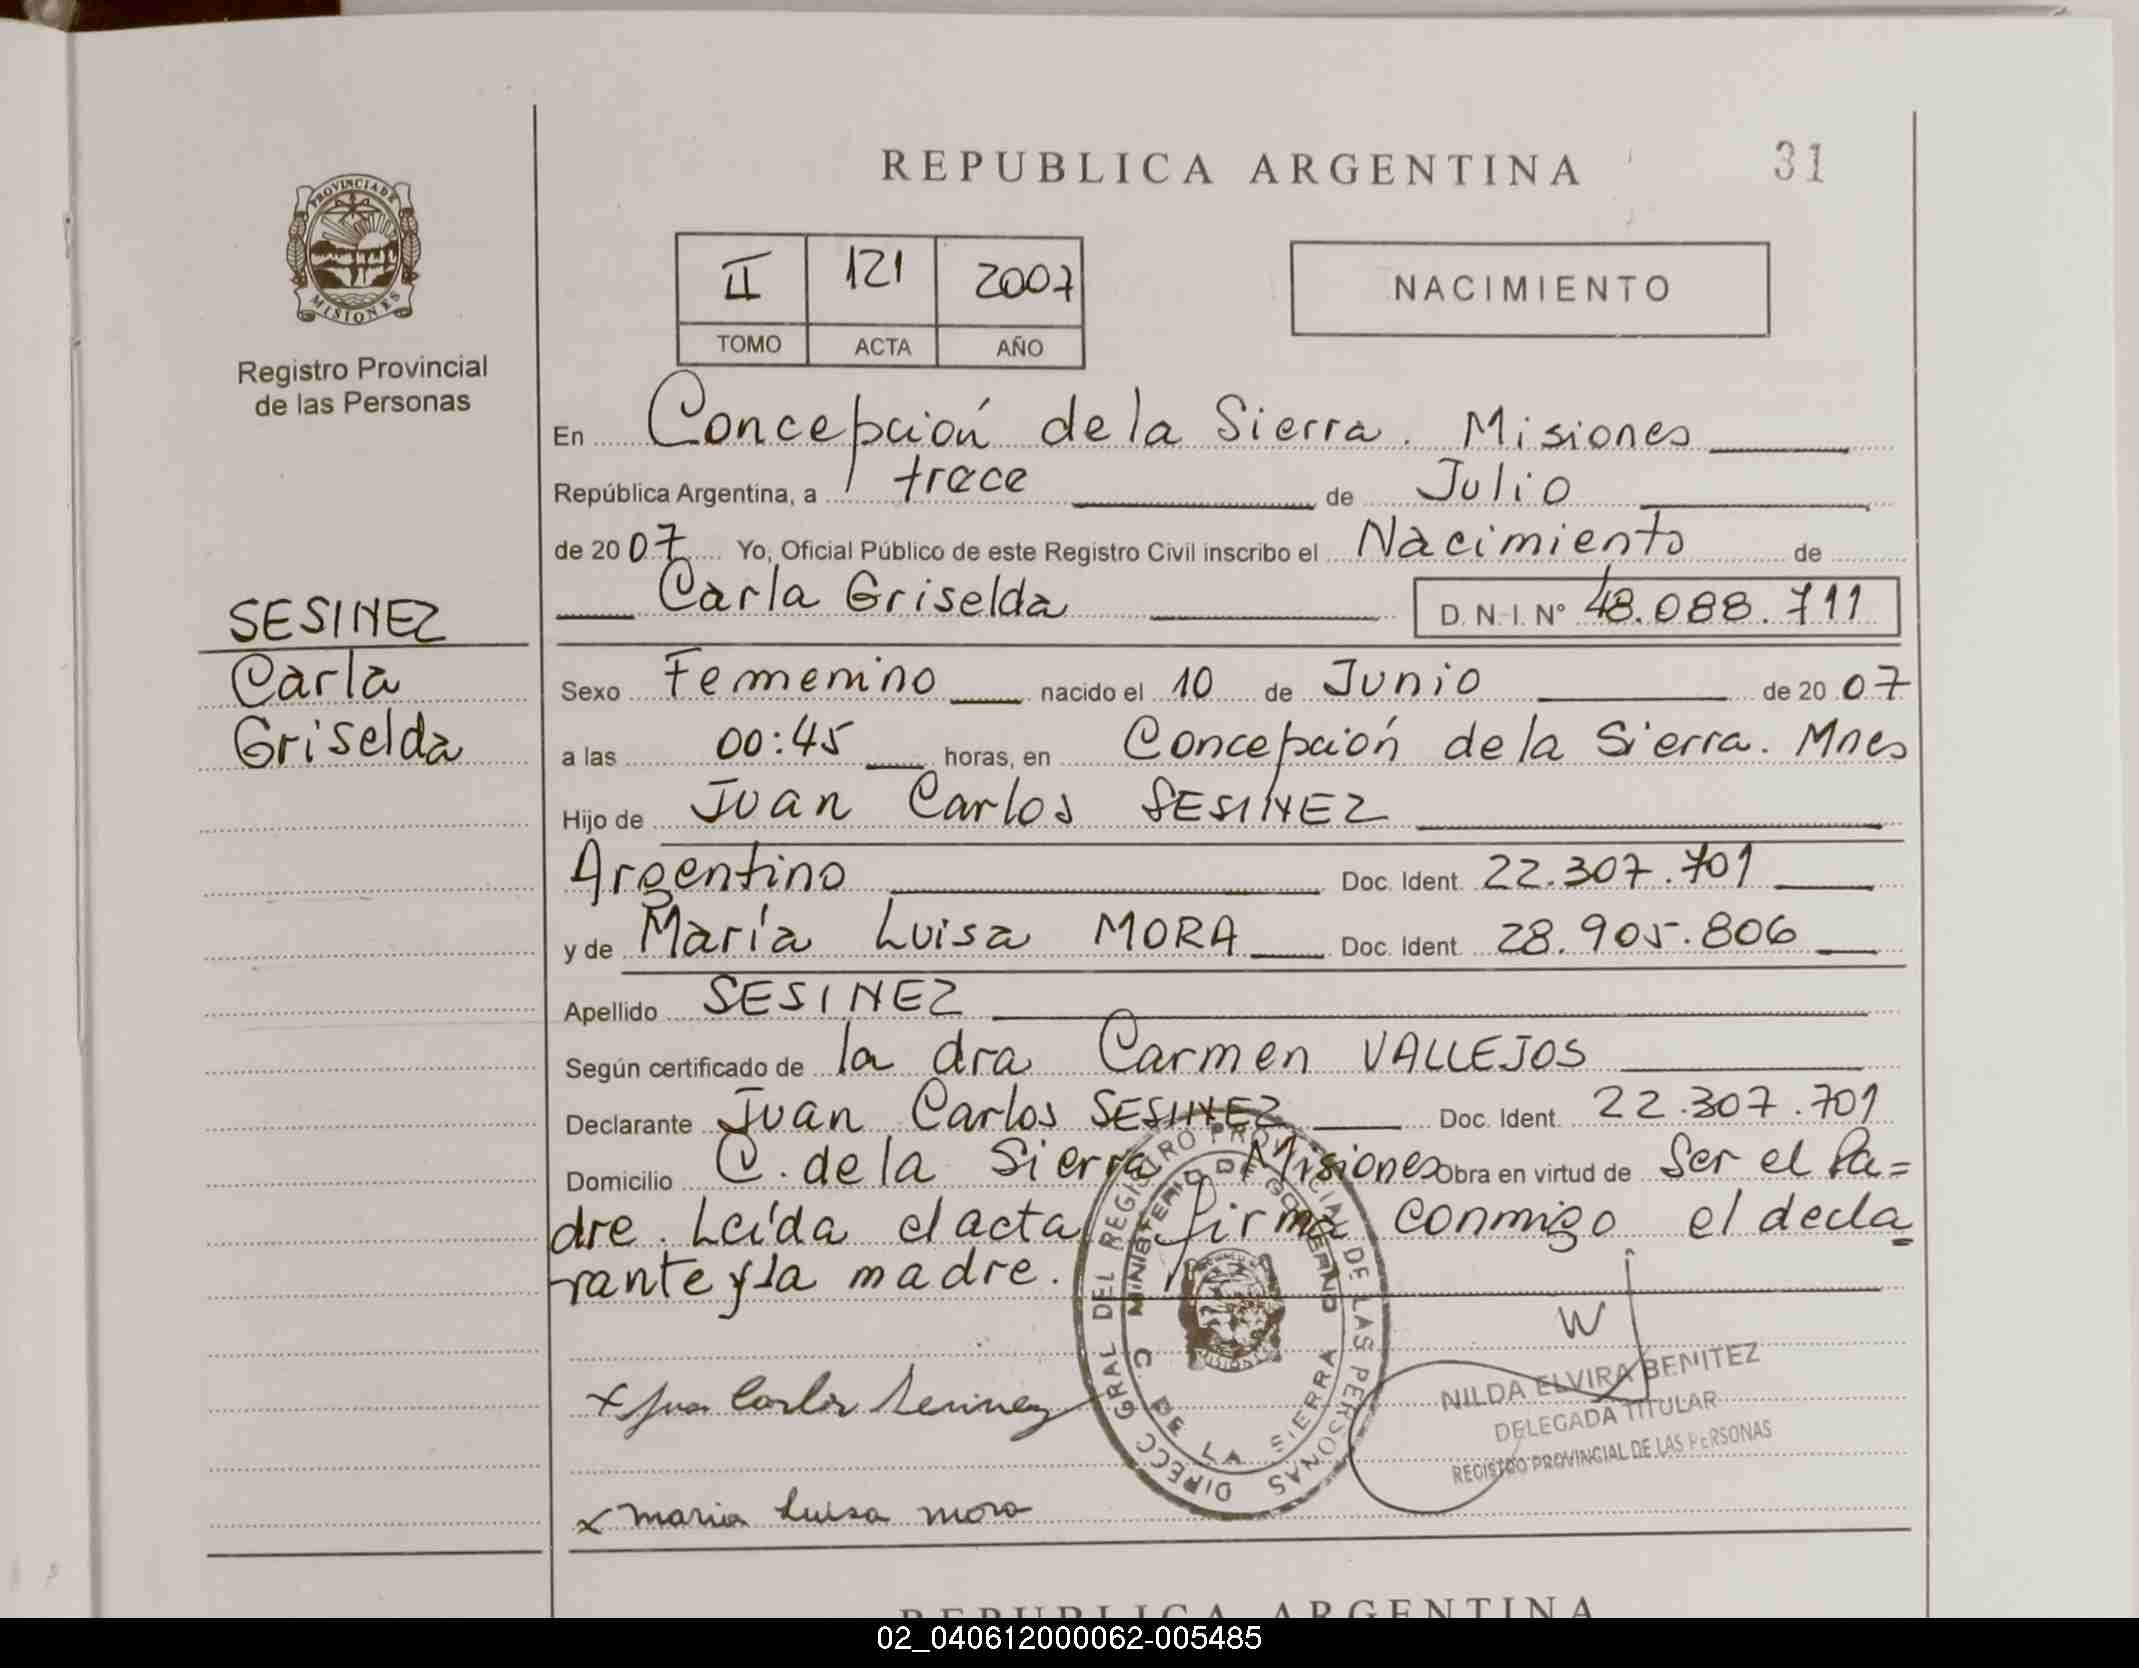 REPUBLICA ARGENTINA
31
PROVINCIA DE
MISIONES
Registro Provincial
de las Personas
II 121 2007
TOMO ACTA AÑO
NACIMIENTO
En Concepción de la Sierra. Misiones
República Argentina, a trece de Julio
de 2007 Yo, Oficial Público de este Registro Civil inscribo el Nacimiento de
Carla Griselda D.N.I. Nº 48.088.711
SESINEZ
Carla
Griselda
Sexo Femenino nacido el 10 de Junio de 2007
a las 00:45 horas, en Concepción de la Sierra. Mnes
Hijo de Juan Carlos SESINEZ
Argentino Doc. Ident. 22.307.701
y de María Luisa MORA Doc. Ident. 28.905.806
Apellido SESINEZ
Según certificado de la dra Carmen VALLEJOS
Declarante Juan Carlos SESINEZ Doc. Ident. 22.307.701
Domicilio C. de la Sierra Misiones Obra en virtud de Ser el Pa=
dre. Leída el acta firma conmigo el decla
rante y la madre.
DIRECC GRAL DEL REGISTRO PROVINCIAL DE LAS PERSONAS
MINISTERIO DE GOBIERNO
C. DE LA SIERRA
x Juan Carlos Sesinez
NILDA ELVIRA BENITEZ
DELEGADA TITULAR
REGISTRO PROVINCIAL DE LAS PERSONAS
x maria Luisa mora
REPUBLICA ARGENTINA
02_040612000062-005485